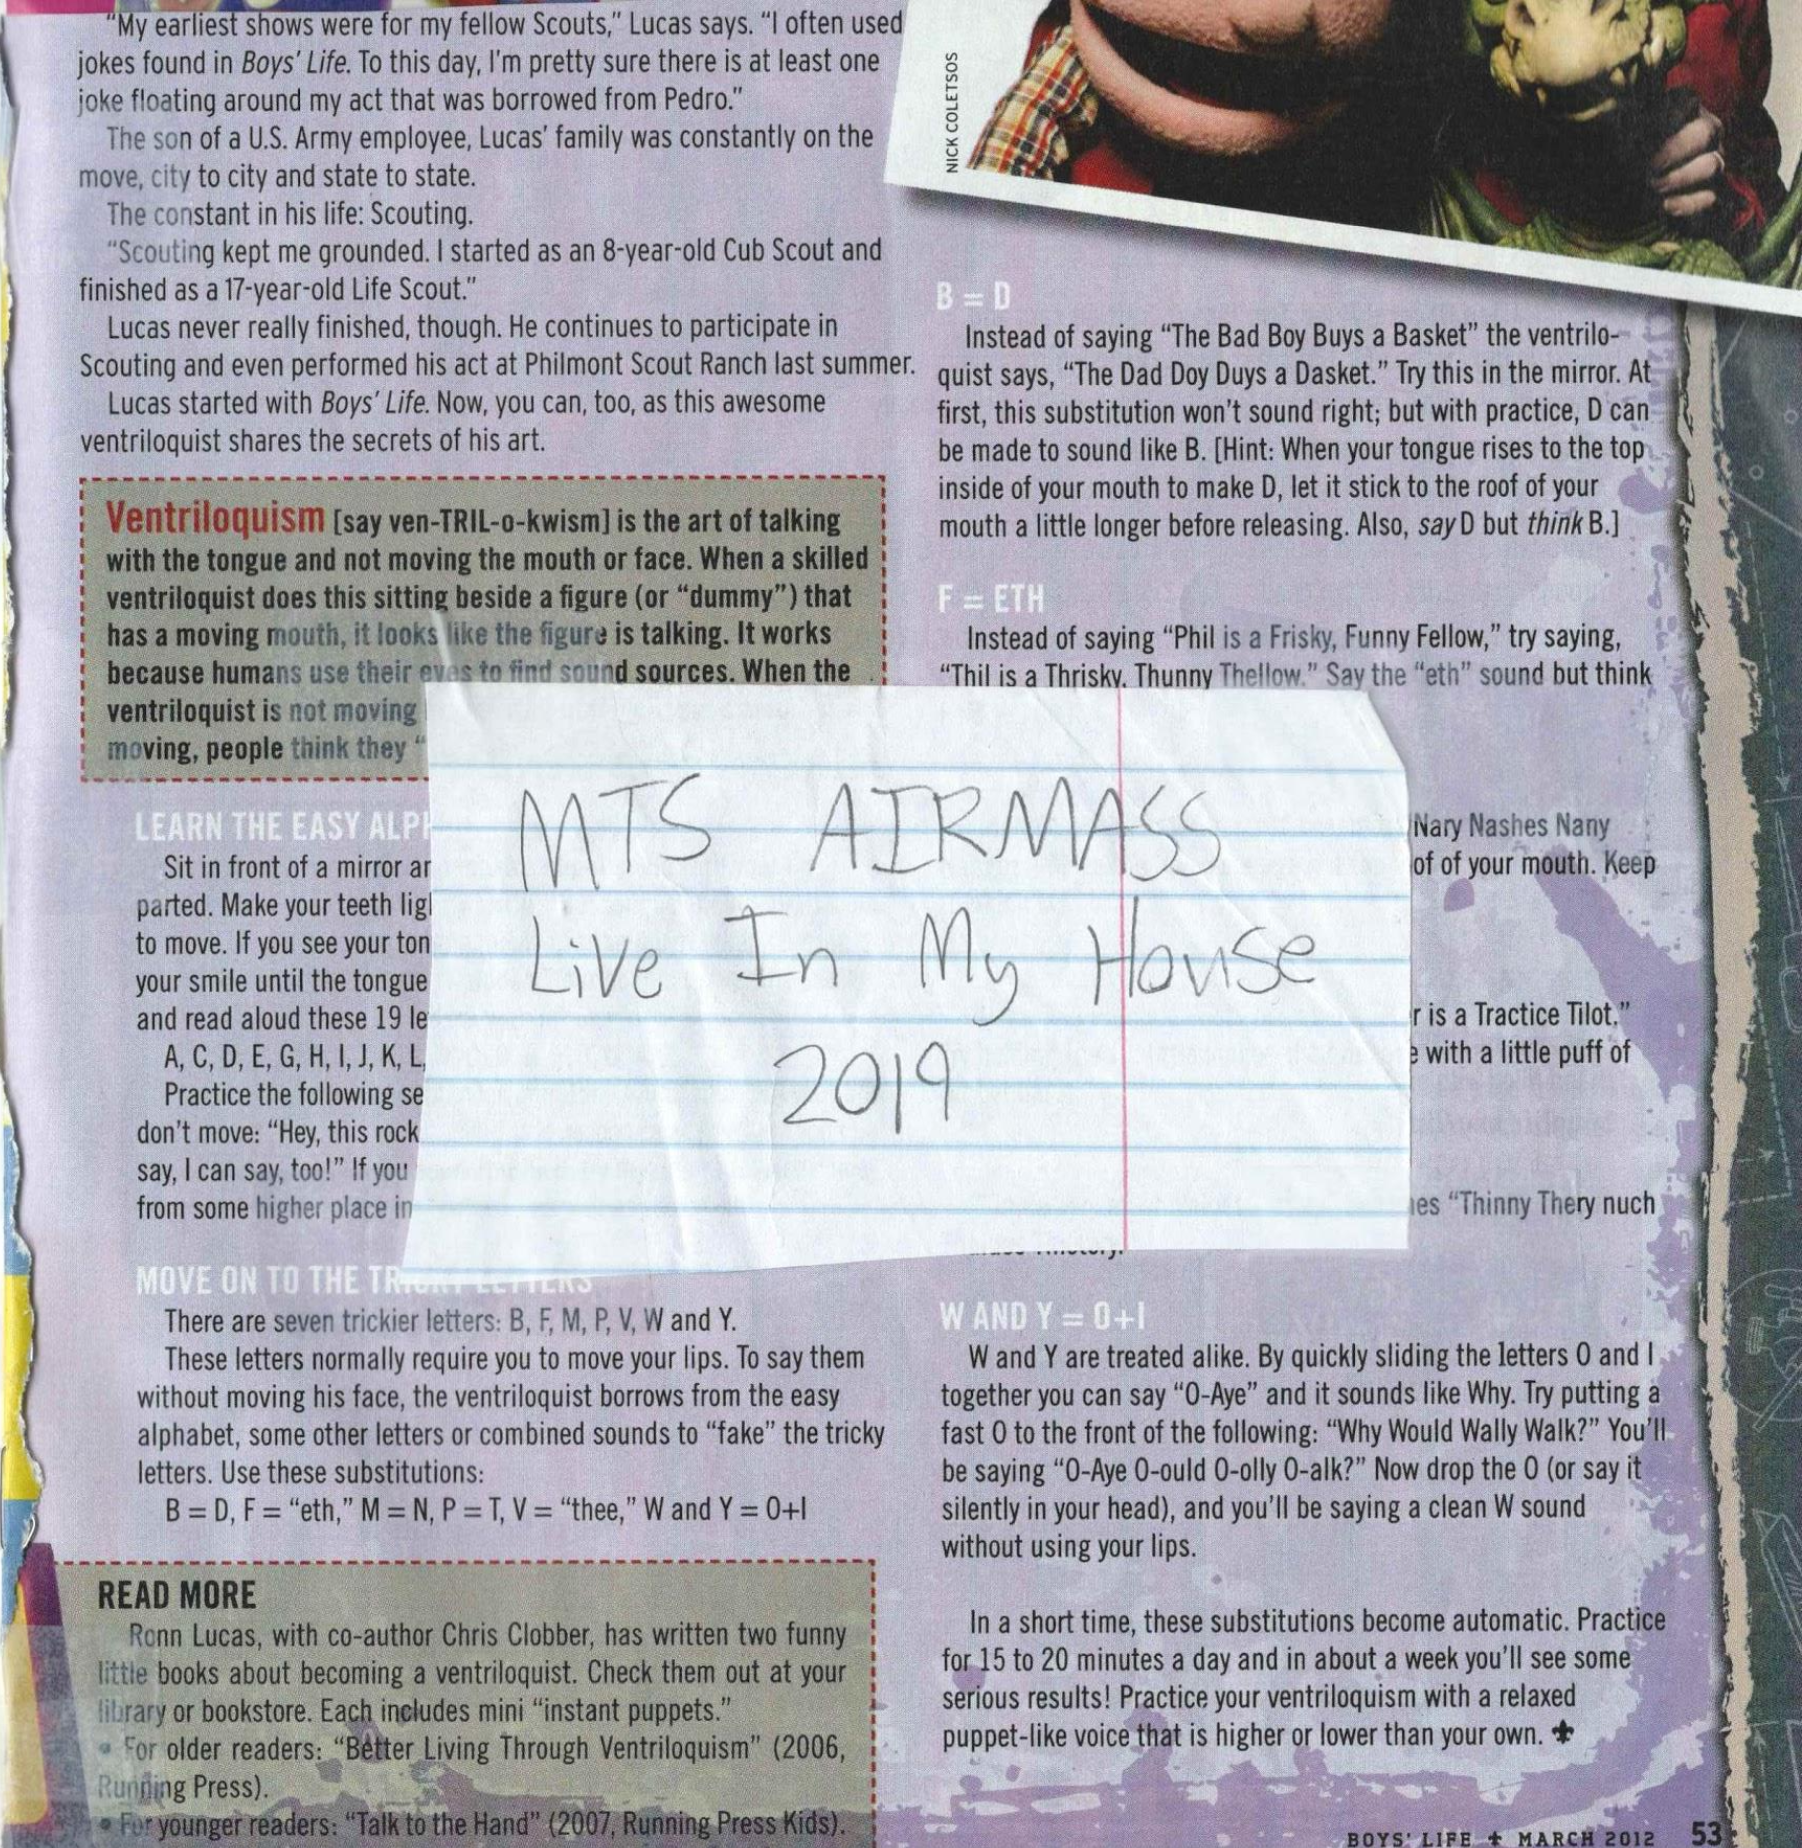 "My earliest shows were for my fellow Scouts," Lucas says. "I often used
jokes found in Boys' Life. To this day, I'm pretty sure there is at least one
joke floating around my act that was borrowed from Pedro."
The son of a U.S. Army employee, Lucas' family was constantly on the
move, city to city and state to state.
The constant in his life: Scouting.
"Scouting kept me grounded. I started as an 8-year-old Cub Scout and
finished as a 17-year-old Life Scout."
Lucas never really finished, though. He continues to participate in
Scouting and even performed his act at Philmont Scout Ranch last summer.
Lucas started with Boys' Life. Now, you can, too, as this awesome
ventriloquist shares the secrets of his art.
Ventriloquism [say ven-TRIL-o-kwism] is the art of talking
with the tongue and not moving the mouth or face. When a skilled
ventriloquist does this sitting beside a figure (or "dummy") that
has a moving mouth, it looks like the figure is talking. It works
because humans use their eyes to find sound sources. When the
ventriloquist is not moving
moving, people think they "
LEARN THE EASY
Sit in front of a mirror
parted. Make your teeth
to move. If you see your
your smile until the tongue
and read aloud these 19
A, C, D, E, G, H, I, J, K, L,
Practice the following
don't move: "Hey, this rock
say, I can say, too!" If you
from some higher place in
MOVE ON TO THE TRICKY LETTERS
There are seven trickier letters: B, F, M, P, V, W and Y.
These letters normally require you to move your lips. To say them
without moving his face, the ventriloquist borrows from the easy
alphabet, some other letters or combined sounds to "fake" the tricky
letters. Use these substitutions:
B = D, F = "eth," M = N, P = T, V = "thee," W and Y = O+I
READ MORE
Ronn Lucas, with co-author Chris Clobber, has written two funny
little books about becoming a ventriloquist. Check them out at your
library or bookstore. Each includes mini "instant puppets."
• For older readers: "Better Living Through Ventriloquism" (2006,
Running Press).
• For younger readers: "Talk to the Hand" (2007, Running Press Kids).
MTS AIRMASS
Live In My House
2019
NICK COLETSOS
B = D
Instead of saying "The Bad Boy Buys a Basket" the ventrilo-
quist says, "The Dad Doy Duys a Dasket." Try this in the mirror. At
first, this substitution won't sound right; but with practice, D can
be made to sound like B. [Hint: When your tongue rises to the top
inside of your mouth to make D, let it stick to the roof of your
mouth a little longer before releasing. Also, say D but think B.]
F = ETH
Instead of saying "Phil is a Frisky, Funny Fellow," try saying,
"Thil is a Thrisky, Thunny Thellow." Say the "eth" sound but think
Nary Nashes Nany
of your mouth. Keep
is a Tractice Tilot."
with a little puff of
"Thinny Thery nuch
W AND Y = O+I
W and Y are treated alike. By quickly sliding the letters O and I
together you can say "O-Aye" and it sounds like Why. Try putting a
fast O to the front of the following: "Why Would Wally Walk?" You'll
be saying "O-Aye O-ould O-olly O-alk?" Now drop the O (or say it
silently in your head), and you'll be saying a clean W sound
without using your lips.
In a short time, these substitutions become automatic. Practice
for 15 to 20 minutes a day and in about a week you'll see some
serious results! Practice your ventriloquism with a relaxed
puppet-like voice that is higher or lower than your own.
BOYS' LIFE MARCH 2012 53